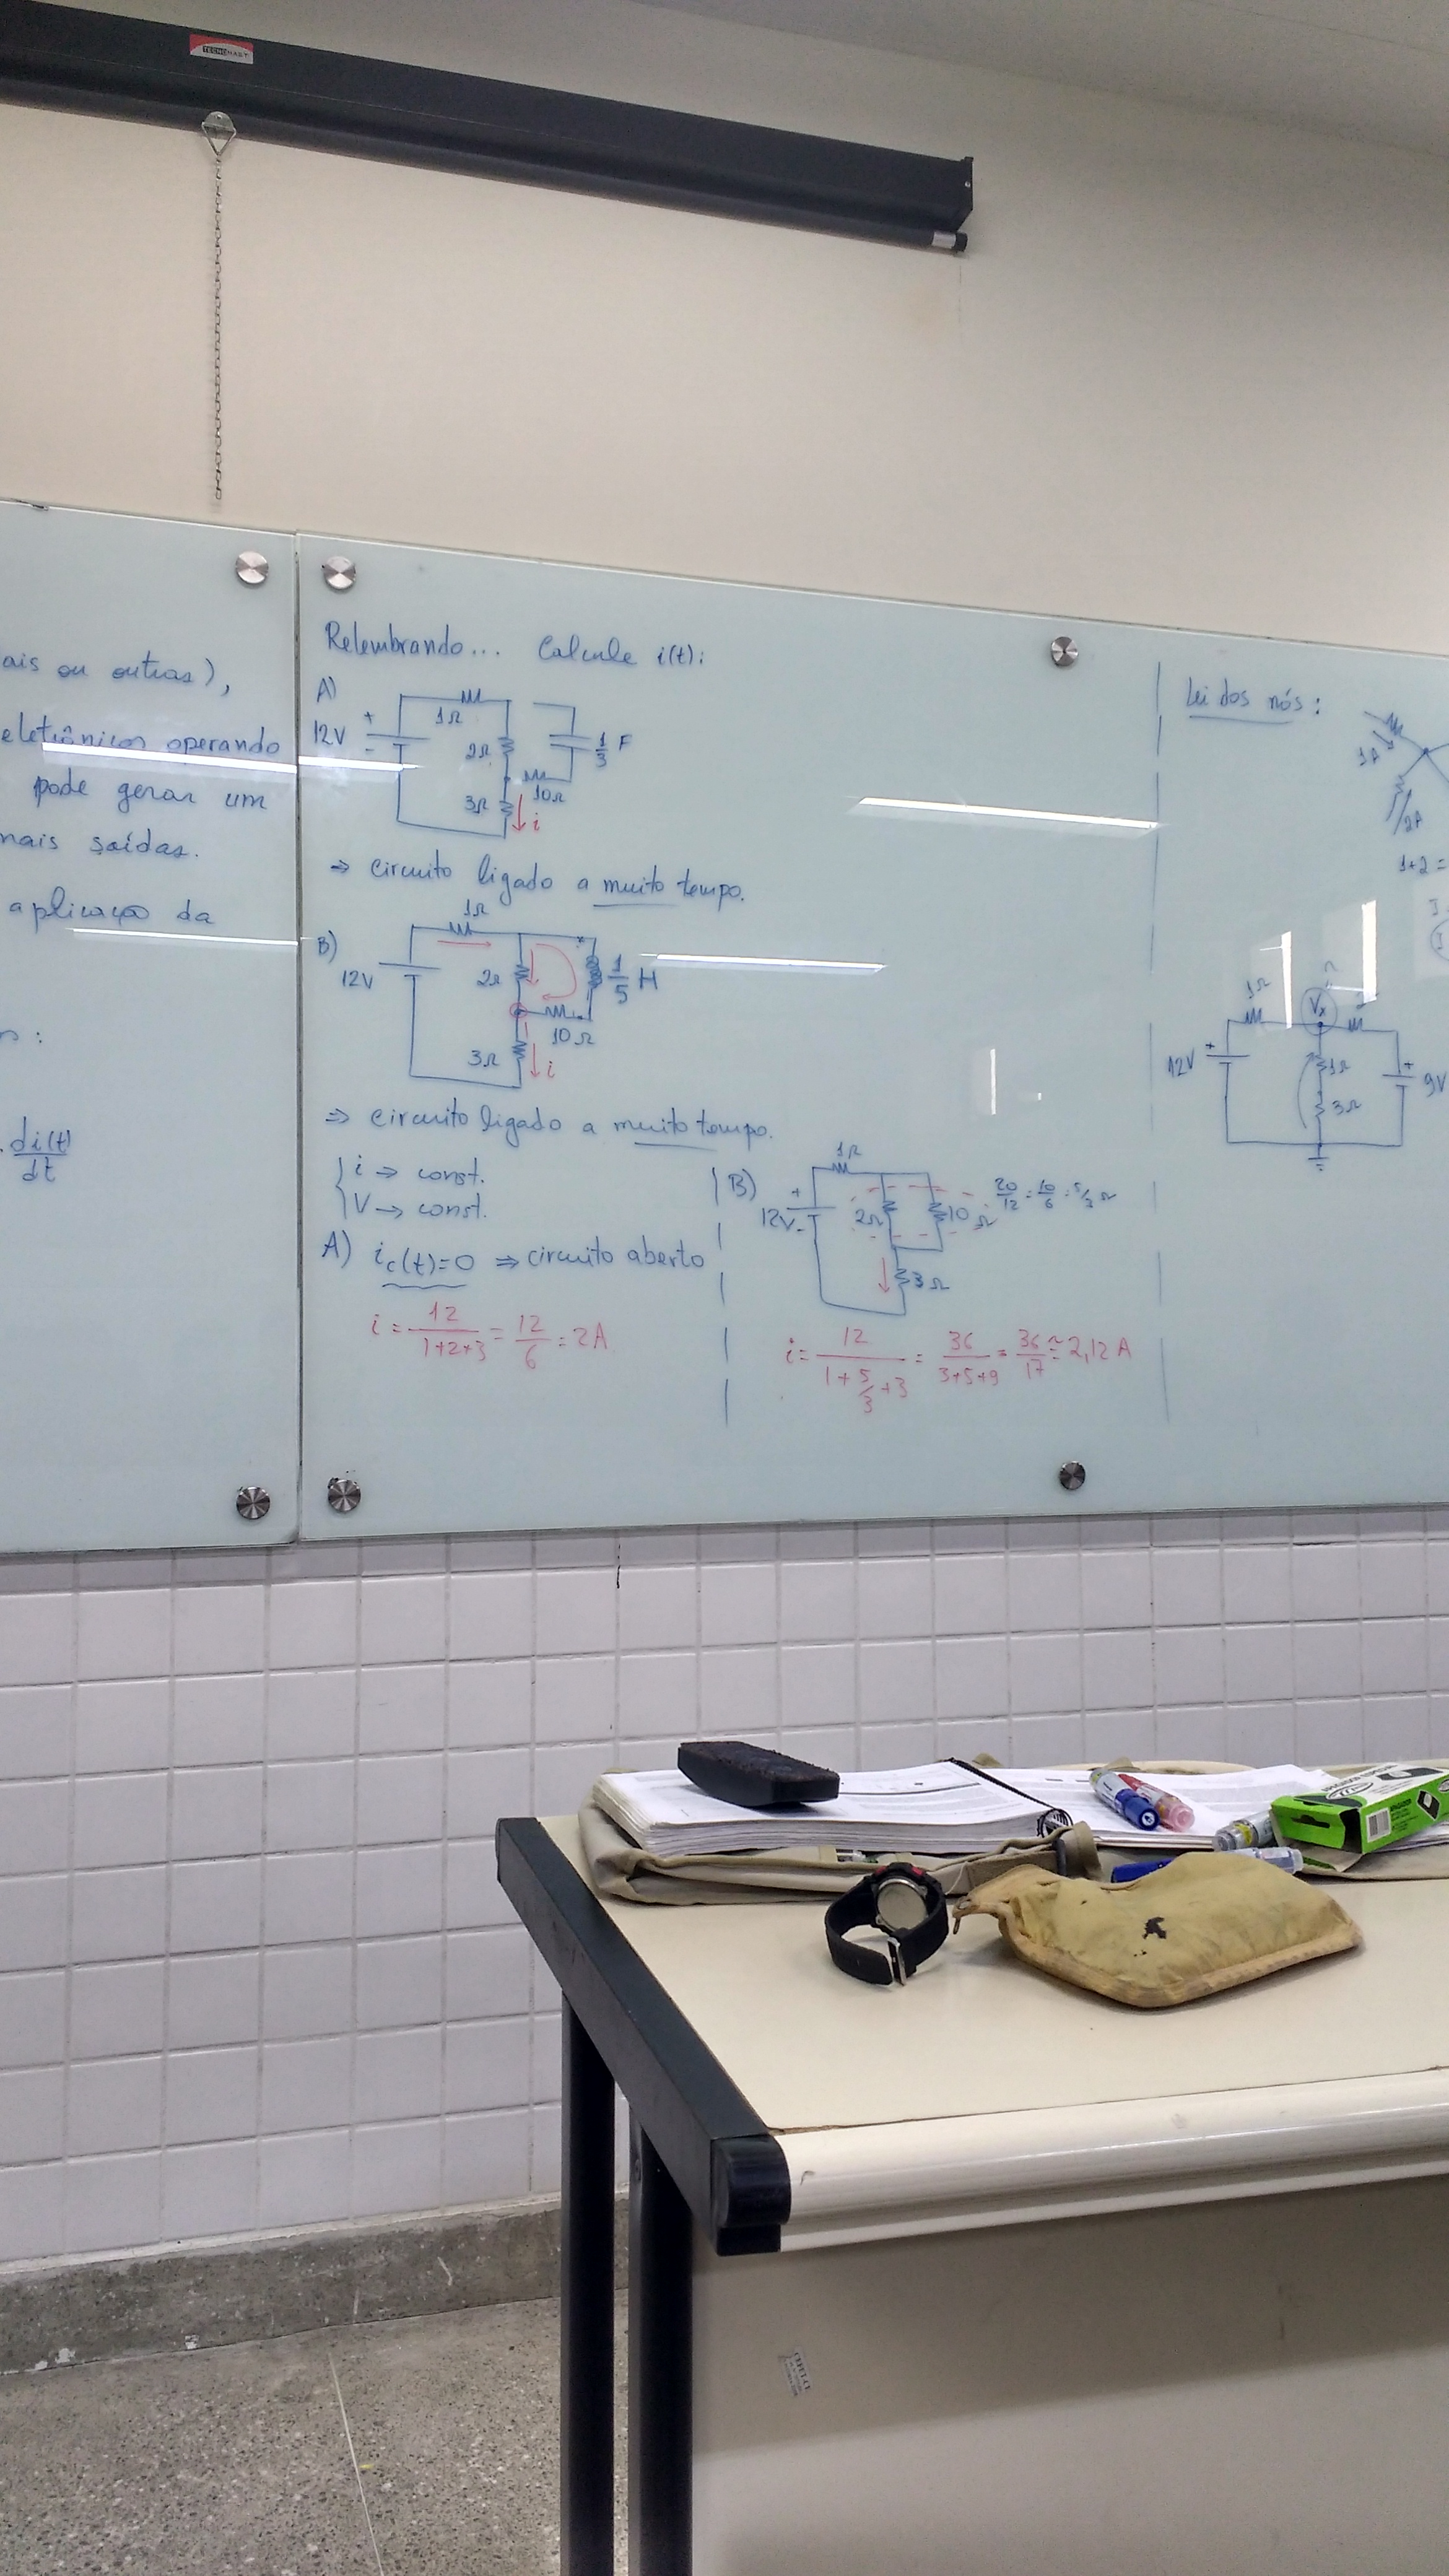 TECNOMAST
ais ou outras),
eletrônicos operando
pode gerar um
mais saídas.
aplicação da
di(t)
dt
Relembrando... Calcule i(t):
A)
12V
+
-
1Ω
2Ω
3Ω
10Ω
1/3 F
i
⇒ circuito ligado a muito tempo.
B)
12V
1Ω
2Ω
3Ω
10Ω
1/5 H
i
⇒ circuito ligado a muito tempo.
{ i → const.
V → const.
A) ic(t)=0 ⇒ circuito aberto
i = 12/(1+2+3) = 12/6 = 2A
B)
12V
+
-
1Ω
2Ω
10Ω
3Ω
20/12 = 10/6 = 5/3 Ω
i = 12/(1+5/3+3) = 36/(3+5+9) = 36/17 ≅ 2,12 A
Lei dos nós:
1A
2A
1+2=
12V
+
1Ω
Vx
1Ω
3Ω
+
9V